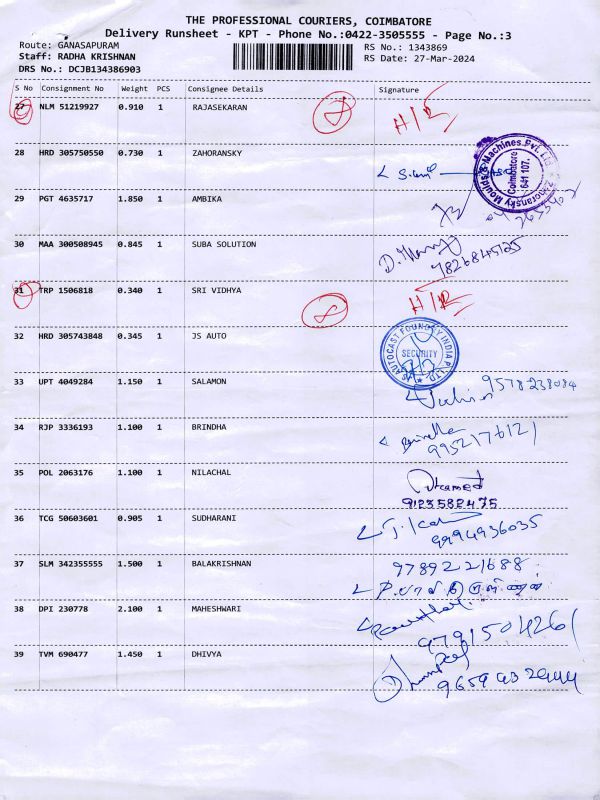 THE PROFESSIONAL COURIERS, COIMBATORE
Delivery Runsheet - KPT - Phone No.:0422-3505555 - Page No.:3
Route: GANASAPURAM
RS No.: 1343869
Staff: RADHA KRISHNAN
RS Date: 27-Mar-2024
DRS No.: DCJB134386903
S No Consignment No Weight PCS Consignee Details Signature
27 NLM 51219927 0.910 1 RAJASEKARAN
28 HRD 305750550 0.730 1 ZAHORANSKY
Zahoransky Moulds & Machines Pvt. Ltd.
Coimbatore
641 107.
29 PGT 4635717 1.850 1 AMBIKA
30 MAA 300508945 0.845 1 SUBA SOLUTION
9826845125
31 TRP 1506818 0.340 1 SRI VIDHYA
32 HRD 305743848 0.345 1 JS AUTO
JS AUTOCAST FOUNDRY INDIA P LTD.
SECURITY
33 UPT 4049284 1.150 1 SALAMON
9578238084
34 RJP 3336193 1.100 1 BRINDHA
9952176121
35 POL 2063176 1.100 1 NILACHAL
9123582475
36 TCG 50603601 0.905 1 SUDHARANI
9994936035
37 SLM 342355555 1.500 1 BALAKRISHNAN
9789221688
38 DPI 230778 2.100 1 MAHESHWARI
9791504261
39 TVM 690477 1.450 1 DHIVYA
9659932944